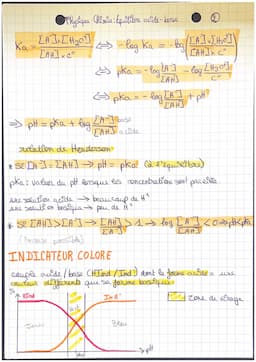 Physique Chimie : Equilibre acide-base
②
Ka = [A⁻]×[H₃O⁺] / [AH]×c° ⇔ -log Ka = -log [A⁻]×[H₃O⁺] / [AH]×c°
⇔ pKa = -log [A⁻]/[AH] - log [H₃O⁺]/c°
⇔ pKa = -log [A⁻]/[AH] + pH
⇒ pH = pKa + log [A⁻]/[AH] base acide
relation de Henderson
* si [A⁻] = [AH] → pH = pKa (à l'équilibre)
pKa : valeur du pH lorsque les concentrations sont pareilles
une solution acide → beaucoup de H⁺
une solution basique → peu de H⁺
* si [AH] > [A⁻] → [AH]/[A⁻] > 1 → log [A⁻]/[AH] < 0 → pH < pKa
(inverse possible)
INDICATEUR COLORE
couple acide/base (HInd/Ind⁻) dont la forme acide a une
couleur différente que sa forme basique
HInd
In A⁻
zone de virage
Jaune
Bleu
→ pH